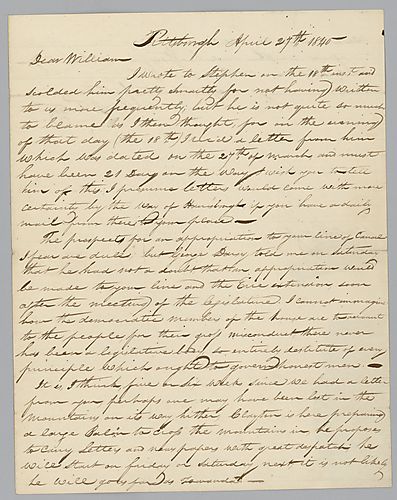 Pittsburgh April 27th 1840
Dear William
I wrote to Stephen on the 18th inst and
scolded him pretty smartly for not having written
to us more frequently, but he is not quite so much
to blame as I then thought, for on the evening
of that day (the 18th) I rec'd a letter from him
which was dated on the 27th of March and must
have been 21 Days on the way I wish you to tell
him of this, I presume letters would come with more
certainty by the way of Harrisburgh if you have a daily
mail from there to your place -
The prospects for an appropriation to your line of Canal
I fear are dull but George Darsy told me on Saturday
that he had not a doubt that an appropriation would
be made to your line and the Erie extension soon
after the meeting of the legislature I cannot immagine
how the democratic members of the house are to account
to the people for their gross misconduct there never
has been a legislature so entirely destitute of every
principle which ought to govern honest men -
It is, I think, five or six weeks since we had a letter
from you perhaps one may have been lost in the
mountains on its way hither Clayton is here preparing
a large Baloon to cross the mountains in he proposes
to carry letters and newspapers with great dispatch he
will start on friday or Saturday next it is not likely
he will go as far as